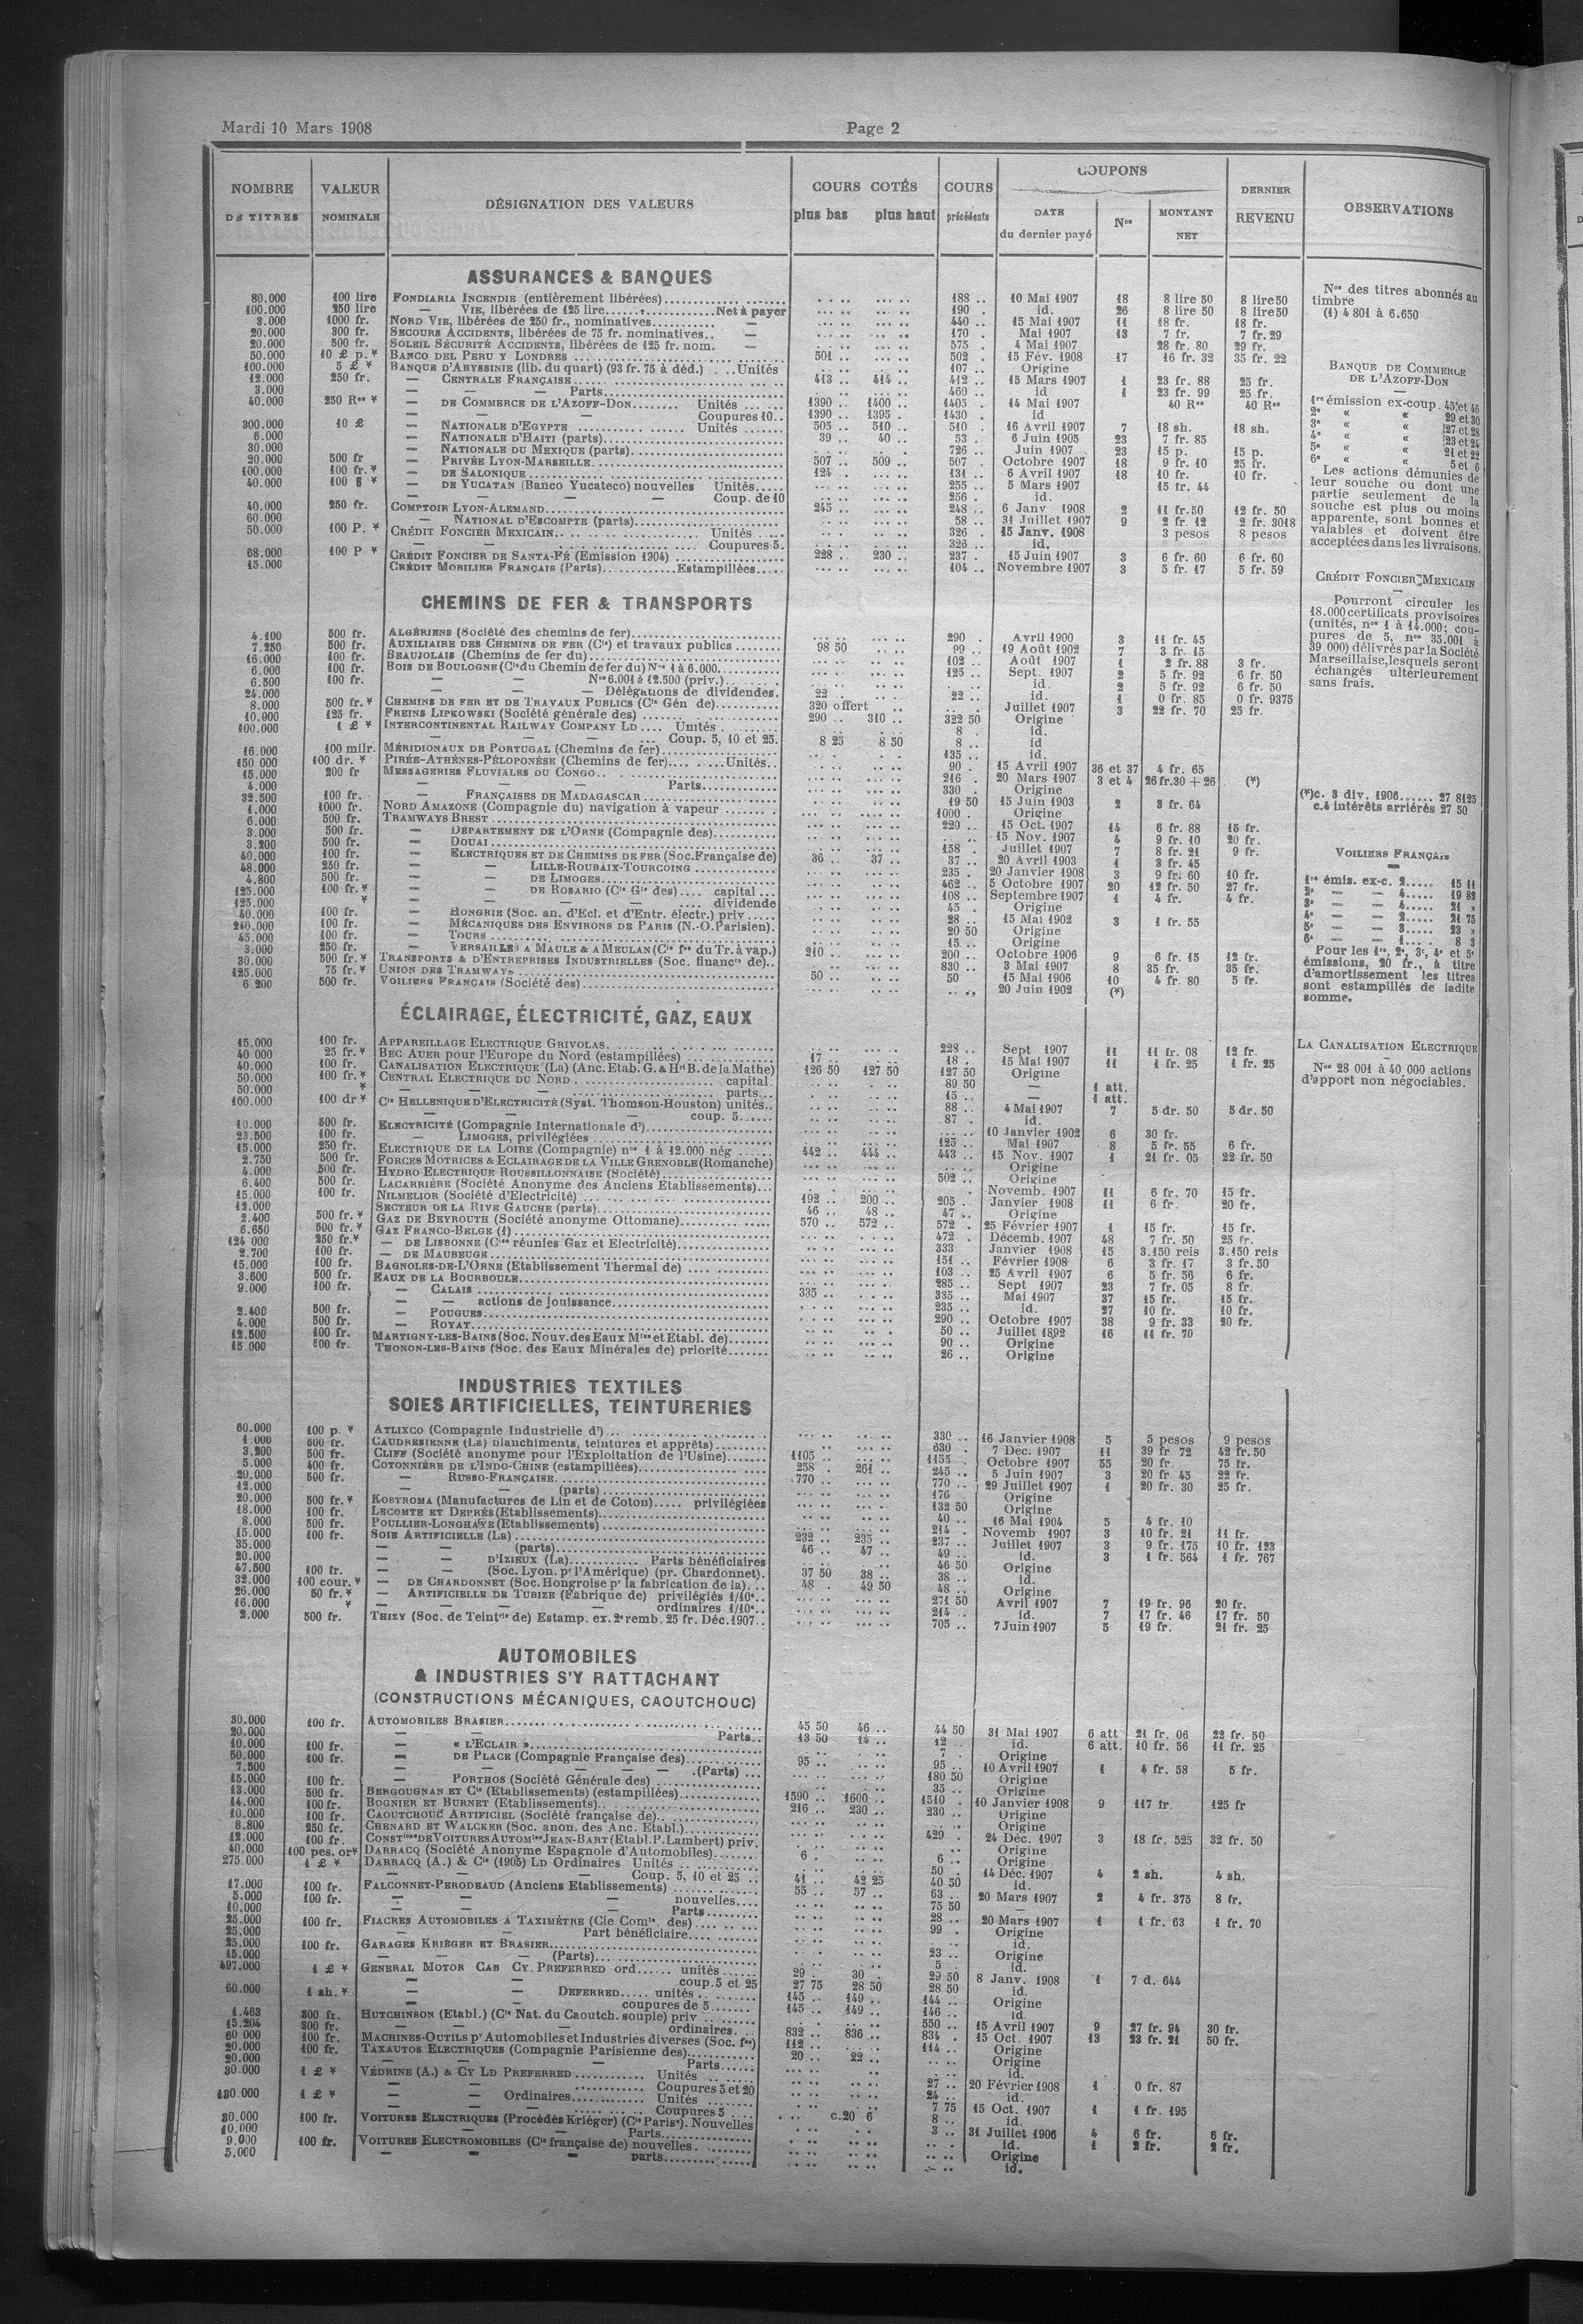 Mardi 10 Mars 1908
Page 2
NOMBRE DE TITRES
VALEUR NOMINALE
DÉSIGNATION DES VALEURS
COURS COTÉS
plus bas plus haut
COURS précédents
COUPONS
DATE du dernier payé
Nos
MONTANT NET
DERNIER REVENU
OBSERVATIONS
ASSURANCES & BANQUES
80.000 100 lire FONDIARIA INCENDIE (entièrement libérées) 188 .. 10 Mai 1907 18 8 lire 50 8 lire 50
100.000 250 lire — VIE, libérées de 125 lire Net à payer 190 . id. 26 8 lire 50 8 lire 50
3.000 1000 fr. NORD VIE, libérées de 250 fr., nominatives — 440 .. 15 Mai 1907 11 18 fr. 18 fr.
20.000 300 fr. SECOURS ACCIDENTS, libérées de 75 fr. nominatives — 170 . Mai 1907 13 7 fr. 7 fr. 29
20.000 500 fr. SOLEIL SÉCURITÉ ACCIDENTS, libérées de 125 fr. nom. — 575 . 4 Mai 1907 28 fr. 80 29 fr.
50.000 10 £ p. * BANCO DEL PERU Y LONDRES 501 .. 502 . 15 Fév. 1908 17 16 fr. 32 35 fr. 22
100.000 5 £ * BANQUE D'ABYSSINIE (lib. du quart) (93 fr. 75 à déd.) Unités 107 .. Origine
12.000 250 fr. — CENTRALE FRANÇAISE 413 .. 414 .. 412 .. 15 Mars 1907 1 23 fr. 88 25 fr.
3.000 — — Parts 460 .. id 1 23 fr. 99 25 fr.
40.000 250 Res * — DE COMMERCE DE L'AZOFF-DON Unités 1390 .. 1400 .. 1405 .. 14 Mai 1907 40 Res 40 Res
— — — Coupures 10 1390 .. 1395 . 1430 . id
300.000 10 £ — NATIONALE D'EGYPTE Unités 505 .. 510 .. 510 . 16 Avril 1907 7 18 sh. 18 sh.
6.000 — NATIONALE D'HAITI (parts) 39 .. 40 .. 53 . 6 Juin 1905 23 7 fr. 85
30.000 — NATIONALE DU MEXIQUE (parts) 726 .. Juin 1907 23 15 p. 15 p.
20.000 500 fr — PRIVÉE LYON-MARSEILLE 507 .. 509 .. 507 . Octobre 1907 18 9 fr. 10 25 fr.
100.000 100 fr. * — DE SALONIQUE 124 .. 131 .. 6 Avril 1907 18 10 fr. 10 fr.
40.000 100 $ * — DE YUCATAN (Banco Yucateco) nouvelles Unités 255 .. 5 Mars 1907 15 fr. 44
— — — Coup. de 10 256 . id.
40.000 250 fr. COMPTOIR LYON-ALEMAND 245 .. 248 .. 6 Janv 1908 2 11 fr. 50 12 fr. 50
60.000 — NATIONAL D'ESCOMPTE (parts) 58 .. 31 Juillet 1907 9 2 fr. 12 2 fr. 3018
50.000 100 P. * CRÉDIT FONCIER MEXICAIN Unités 326 . 15 Janv. 1908 3 pesos 8 pesos
— — Coupures 5. 326 .. id.
68.000 100 P * CRÉDIT FONCIER DE SANTA-FÉ (Emission 1904) 228 .. 230 .. 237 . 15 Juin 1907 3 6 fr. 60 6 fr. 60
15.000 CRÉDIT MOBILIER FRANÇAIS (Parts) Estampillées 104 .. Novembre 1907 3 5 fr. 17 5 fr. 59
CHEMINS DE FER & TRANSPORTS
4.100 500 fr. ALGÉRIENS (Société des chemins de fer) 290 . Avril 1900 3 11 fr. 45
7.250 500 fr. AUXILIAIRE DES CHEMINS DE FER (Cie) et travaux publics 98 50 99 .. 19 Août 1902 7 3 fr. 15
16.000 100 fr. BEAUJOLAIS (Chemins de fer du) 102 .. Août 1907 1 2 fr. 88 3 fr.
6.000 100 fr. BOIS DE BOULOGNE (Cie du Chemin de fer du) Nos 1 à 6.000 125 .. Sept. 1907 2 5 fr. 92 6 fr. 50
6.500 100 fr. — — Nos 6.001 à 12.500 (priv.) id. 2 5 fr. 92 6 fr. 50
24.000 — — Délégations de dividendes. 22 .. 22 .. id. 1 0 fr. 85 0 fr. 9375
8.000 500 fr. * CHEMINS DE FER ET DE TRAVAUX PUBLICS (Cie Gén de) 320 offert Juillet 1907 3 22 fr. 70 25 fr.
10.000 125 fr. FREINS LIPKOWSKI (Société générale des) 290 .. 310 .. 322 50 Origine
100.000 1 £ * INTERCONTINENTAL RAILWAY COMPANY LD Unités 8 . id.
— — Coup. 5, 10 et 25. 8 25 8 50 8 .. id
16.000 100 milr. MÉRIDIONAUX DE PORTUGAL (Chemins de fer) 135 .. id.
150 000 100 dr. * PIRÉE-ATHÈNES-PÉLOPONÈSE (Chemins de fer) Unités 90 . 15 Avril 1907 36 et 37 4 fr. 65
15.000 200 fr MESSAGERIES FLUVIALES DU CONGO 216 . 20 Mars 1907 3 et 4 26 fr. 30 + 26 (*)
4.000 — — Parts 330 . Origine
32.500 100 fr. — FRANÇAISES DE MADAGASCAR 19 50 15 Juin 1903 2 3 fr. 64
1.000 1000 fr. NORD AMAZONE (Compagnie du) navigation à vapeur 1000 . Origine
6.000 500 fr. TRAMWAYS BREST 220 .. 15 Oct. 1907 14 6 fr. 88 15 fr.
3.000 500 fr. — DÉPARTEMENT DE L'ORNE (Compagnie des) 15 Nov. 1907 4 9 fr. 10 20 fr.
3.200 500 fr. — DOUAI 158 . Juillet 1907 7 8 fr. 21 9 fr.
40.000 100 fr. — ELECTRIQUES ET DE CHEMINS DE FER (Soc. Française de) 36 .. 37 .. 37 .. 20 Avril 1903 1 3 fr. 45
48.000 250 fr. — LILLE-ROUBAIX-TOURCOING 235 . 20 Janvier 1908 3 9 fr. 60 10 fr.
4.800 500 fr. — DE LIMOGES 462 .. 5 Octobre 1907 20 12 fr. 50 27 fr.
125.000 100 fr. * — DE ROSARIO (Cie Gle des) capital 108 .. Septembre 1907 1 4 fr. 4 fr.
125.000 * — — dividende 45 . Origine
40.000 100 fr. — HONGRIE (Soc. an. d'Ecl. et d'Entr. électr.) priv 28 .. 15 Mai 1902 3 1 fr. 55
240.000 100 fr. — MÉCANIQUES DES ENVIRONS DE PARIS (N.-O. Parisien). 20 50 Origine
45.000 100 fr. — TOURS 15 .. Origine
3.000 250 fr. — VERSAILLES A MAULE & A MEULAN (Cie fse du Tr. à vap.) 210 .. 200 .. Octobre 1906 9 6 fr. 15 12 fr.
30.000 500 fr. * TRANSPORTS & D'ENTREPRISES INDUSTRIELLES (Soc. financre de) 830 .. 3 Mai 1907 8 35 fr. 35 fr.
125.000 75 fr. * UNION DES TRAMWAYS 50 .. 50 15 Mai 1906 10 4 fr. 80 5 fr.
6.200 500 fr. VOILIERS FRANÇAIS (Société des) 20 Juin 1902 (*)
ÉCLAIRAGE, ÉLECTRICITÉ, GAZ, EAUX
15.000 100 fr. APPAREILLAGE ELECTRIQUE GRIVOLAS 228 .. Sept 1907 11 11 fr. 08 12 fr.
40 000 25 fr. * BEC AUER pour l'Europe du Nord (estampillées) 17 18 . 15 Mai 1907 11 1 fr. 25 1 fr. 25
40.000 100 fr. CANALISATION ELECTRIQUE (La) (Anc. Etab. G. & Hri B. de la Mathe) 126 50 127 50 127 50 Origine
50.000 100 fr. * CENTRAL ELECTRIQUE DU NORD capital 89 50 — 1 att.
50.000 * — — parts 15 .. — 1 att.
100.000 100 dr * Cie HELLENIQUE D'ELECTRICITÉ (Syst. Thomson-Houston) unités 88 .. 4 Mai 1907 7 5 dr. 50 5 dr. 50
— — coup. 5 87 . id.
10.000 500 fr. ELECTRICITÉ (Compagnie Internationale d') 10 Janvier 1902 6 30 fr.
23.500 100 fr. — LIMOGES, privilégiées 125 .. Mai 1907 8 5 fr. 55 6 fr.
15.000 250 fr. ELECTRIQUE DE LA LOIRE (Compagnie) nos 1 à 12.000 nég 442 .. 444 .. 443 .. 15 Nov. 1907 1 21 fr. 05 22 fr. 50
2.750 500 fr. FORCES MOTRICES & ECLAIRAGE DE LA VILLE GRENOBLE (Romanche) Origine
4.000 500 fr. HYDRO-ELECTRIQUE ROUSSILLONNAISE (Société) 502 .. Origine
6.400 500 fr. LACARRIÈRE (Société Anonyme des Anciens Etablissements) Novemb. 1907 11 6 fr. 70 15 fr.
15.000 100 fr. NILMELIOR (Société d'Electricité) 192 .. 200 .. 205 . Janvier 1908 11 6 fr. 20 fr.
12.000 SECTEUR DE LA RIVE GAUCHE (parts) 46 .. 48 .. 47 .. Origine
2.400 500 fr. * GAZ DE BEYROUTH (Société anonyme Ottomane) 570 .. 572 .. 572 . 25 Février 1907 1 15 fr. 15 fr.
6.650 500 fr. * GAZ FRANCO-BELGE (1) 472 . Décemb. 1907 48 7 fr. 50 25 fr.
124 000 250 fr. * — DE LISBONNE (Cies réunies Gaz et Electricité) 333 Janvier 1908 15 3.150 reis 3.150 reis
2.700 100 fr. — DE MAUBEUGE 151 .. Février 1908 6 3 fr. 17 3 fr. 50
15.000 100 fr. BAGNOLES-DE-L'ORNE (Etablissement Thermal de) 103 .. 25 Avril 1907 6 5 fr. 56 6 fr.
3.600 500 fr. EAUX DE LA BOURBOULE 285 .. Sept 1907 23 7 fr. 05 8 fr.
9.000 100 fr. — CALAIS 335 .. 335 .. Mai 1907 37 15 fr. 15 fr.
— — actions de jouissance 235 .. id. 27 10 fr. 10 fr.
2.400 500 fr. — POUGUES 290 .. Octobre 1907 38 9 fr. 33 20 fr.
4.000 500 fr. — ROYAT 50 .. Juillet 1892 16 11 fr. 70
12.500 100 fr. MARTIGNY-LES-BAINS (Soc. Nouv. des Eaux Mles et Etabl. de) 90 .. Origine
15.000 THONON-LES-BAINS (Soc. des Eaux Minérales de) priorité 26 .. Origine
INDUSTRIES TEXTILES
SOIES ARTIFICIELLES, TEINTURERIES
60.000 100 p. * ATLIXCO (Compagnie Industrielle d') 330 .. 16 Janvier 1908 5 5 pesos 9 pesos
1.000 500 fr. CAUDRESIENNE (La) blanchiments, teintures et apprêts) 630 . 7 Dec. 1907 11 39 fr 72 42 fr. 50
3.200 500 fr. CLIFF (Société anonyme pour l'Exploitation de l'Usine) 1105 .. 1155 . Octobre 1907 55 20 fr. 75 fr.
5.000 400 fr. COTONNIÈRE DE L'INDO-CHINE (estampillées) 258 . 261 .. 245 .. 5 Juin 1907 3 20 fr. 45 22 fr.
20.000 500 fr. — RUSSO-FRANÇAISE 770 .. 770 .. 29 Juillet 1907 1 20 fr. 30 25 fr.
12.000 — — (parts) 176 Origine
20.000 500 fr. * KOSTROMA (Manufactures de Lin et de Coton) privilégiées 132 50 Origine
18.000 100 fr. LECOMTE ET DEPRÈS (Etablissements) 40 .. 16 Mai 1904 5 4 fr. 10
8.000 500 fr. POULLIER-LONGHAYE (Etablissements) 214 . Novemb 1907 3 10 fr. 21 11 fr.
15.000 100 fr. SOIE ARTIFICIELLE (La) 232 .. 235 .. 237 .. Juillet 1907 3 9 fr. 175 10 fr. 123
35.000 — — (parts) 46 .. 47 .. 49 .. id. 3 1 fr. 564 1 fr. 767
20.000 — — D'IZIEUX (La) Parts bénéficiaires 46 50 Origine
47.500 100 fr. — (Soc. Lyon. pr l'Amérique) (pr. Chardonnet). 37 50 38 .. 38 .. id.
32.000 100 cour. * — DE CHARDONNET (Soc. Hongroise pr la fabrication de la) 48 . 49 50 48 .. Origine
26.000 50 fr. * — ARTIFICIELLE DE TUBIZE (Fabrique de) privilégiés 1/10e 271 50 Avril 1907 7 19 fr. 96 20 fr.
16.000 * — — ordinaires 1/10e 214 .. id. 7 17 fr. 46 17 fr. 50
2.000 500 fr. THIZY (Soc. de Teintrie de) Estamp. ex. 2e remb. 25 fr. Déc. 1907 705 .. 7 Juin 1907 5 19 fr. 21 fr. 25
AUTOMOBILES
& INDUSTRIES S'Y RATTACHANT
(CONSTRUCTIONS MÉCANIQUES, CAOUTCHOUC)
30.000 100 fr. AUTOMOBILES BRASIER 45 50 46 .. 44 50 31 Mai 1907 6 att 21 fr. 06 22 fr. 50
20.000 — — Parts 13 50 14 .. 12 .. id. 6 att. 10 fr. 56 11 fr. 25
10.000 100 fr. — « L'ECLAIR » 7 . Origine
50.000 100 fr. — DE PLACE (Compagnie Française des) 95 .. 95 .. 10 Avril 1907 1 4 fr. 58 5 fr.
7.500 — — (Parts) 180 50 Origine
15.000 100 fr. — PORTHOS (Société Générale des) 35 .. Origine
13.000 500 fr. BERGOUGNAN ET Cie (Etablissements) (estampillées) 1590 .. 1600 .. 1510 . 10 Janvier 1908 9 117 fr 125 fr
14.000 100 fr. BOGNIER ET BURNET (Etablissements) 216 .. 230 .. 230 .. Origine
10.000 100 fr. CAOUTCHOUC ARTIFICIEL (Société française de) Origine
8.800 250 fr. CHENARD ET WALCKER (Soc. anon. des Anc. Etabl.) 429 . 24 Déc. 1907 3 18 fr. 525 32 fr. 50
12.000 100 fr. CONSTions DE VOITURES AUTOMles JEAN-BART (Etabl. P. Lambert) priv. Origine
40.000 100 pes. or * DARRACQ (Société Anonyme Espagnole d'Automobiles) 6 . 6 .. Origine
275.000 1 £ * DARRACQ (A.) & Cie (1905) LD Ordinaires Unités 50 . 14 Déc. 1907 4 2 sh. 4 sh.
— — Coup. 5, 10 et 25 41 .. 42 25 40 50 id.
17.000 100 fr. FALCONNET-PERODEAUD (Anciens Etablissements) 55 .. 57 .. 63 .. 20 Mars 1907 2 4 fr. 375 8 fr.
5.000 100 fr. — — nouvelles 75 50 —
10.000 — — Parts 28 .. 20 Mars 1907 1 1 fr. 63 1 fr. 70
25.000 100 fr. FIACRES AUTOMOBILES A TAXIMÈTRE (Cie Comle des) 99 . Origine
25.000 — — Part bénéficiaire id.
25.000 100 fr. GARAGES KRIÉGER ET BRASIER 23 .. Origine
15.000 — — (Parts) 5 . id.
497.000 1 £ * GENERAL MOTOR CAB CY. PREFERRED ord. unités 29 . 30 . 29 50 8 Janv. 1908 1 7 d. 644
— — coup. 5 et 25 27 75 28 50 28 50 id.
60.000 1 sh. * — DEFERRED unités 145 .. 149 .. 144 .. Origine
— — coupures de 5 145 .. 149 .. 146 .. id.
1.463 300 fr. HUTCHINSON (Etabl.) (Cie Nat. du Caoutch. souple) priv 550 .. 15 Avril 1907 9 27 fr. 94 30 fr.
15.204 300 fr. — — ordinaires 832 .. 836 .. 834 . 15 Oct. 1907 13 23 fr. 21 50 fr.
60 000 100 fr. MACHINES-OUTILS pr Automobiles et Industries diverses (Soc. fse) 112 .. 114 .. Origine
20.000 100 fr. TAXAUTOS ELECTRIQUES (Compagnie Parisienne des) 20 .. 22 .. Origine
20.000 — — Parts id.
30.000 1 £ * VÉDRINE (A.) & CY LD PREFERRED Unités 27 .. 20 Février 1908 1 0 fr. 87
— — Coupures 5 et 20 24 .. id.
130.000 1 £ * — Ordinaires Unités 7 75 15 Oct. 1907 1 1 fr. 195
— — Coupures 5 c.20 6 8 .. id.
30.000 100 fr. VOITURES ELECTRIQUES (Procédés Kriéger) (Cie Parise). Nouvelles 3 .. 31 Juillet 1906 4 6 fr. 6 fr.
10.000 — — Parts id. 1 2 fr. 2 fr.
9.000 100 fr. VOITURES ELECTROMOBILES (Cie française de) nouvelles Origine
5.000 — — parts id.
Nos des titres abonnés au
timbre
(1) 4 801 à 6.650
BANQUE DE COMMERCE
DE L'AZOFF-DON
1re émission ex-coup. 45 et 46
2e « « 29 et 30
3e « « 27 et 28
4e « « 23 et 24
5e « « 21 et 22
6e « « 5 et 6
Les actions démunies de
leur souche ou dont une
partie seulement de la
souche est plus ou moins
apparente, sont bonnes et
valables et doivent être
acceptées dans les livraisons.
CRÉDIT FONCIER MEXICAIN
Pourront circuler les
18.000 certificats provisoires
(unités, nos 1 à 14.000; cou-
pures de 5, nos 35.001 à
39 000) délivrés par la Société
Marseillaise, lesquels seront
échangés ultérieurement
sans frais.
(*) c. 3 div. 1906 27 8125
c. 4 intérêts arriérés 27 50
VOILIERS FRANÇAIS
1re émis. ex-c. 2 15 11
2e — — 4 19 82
3e — — 4 21 »
4e — — 2 21 75
5e — — 3 23 »
6e — — 1 8 3
Pour les 1re, 2e, 3e, 4e et 5e
émissions, 20 fr., à titre
d'amortissement les titres
sont estampillés de ladite
somme.
LA CANALISATION ELECTRIQUE
Nos 28 001 à 40 000 actions
d'apport non négociables.